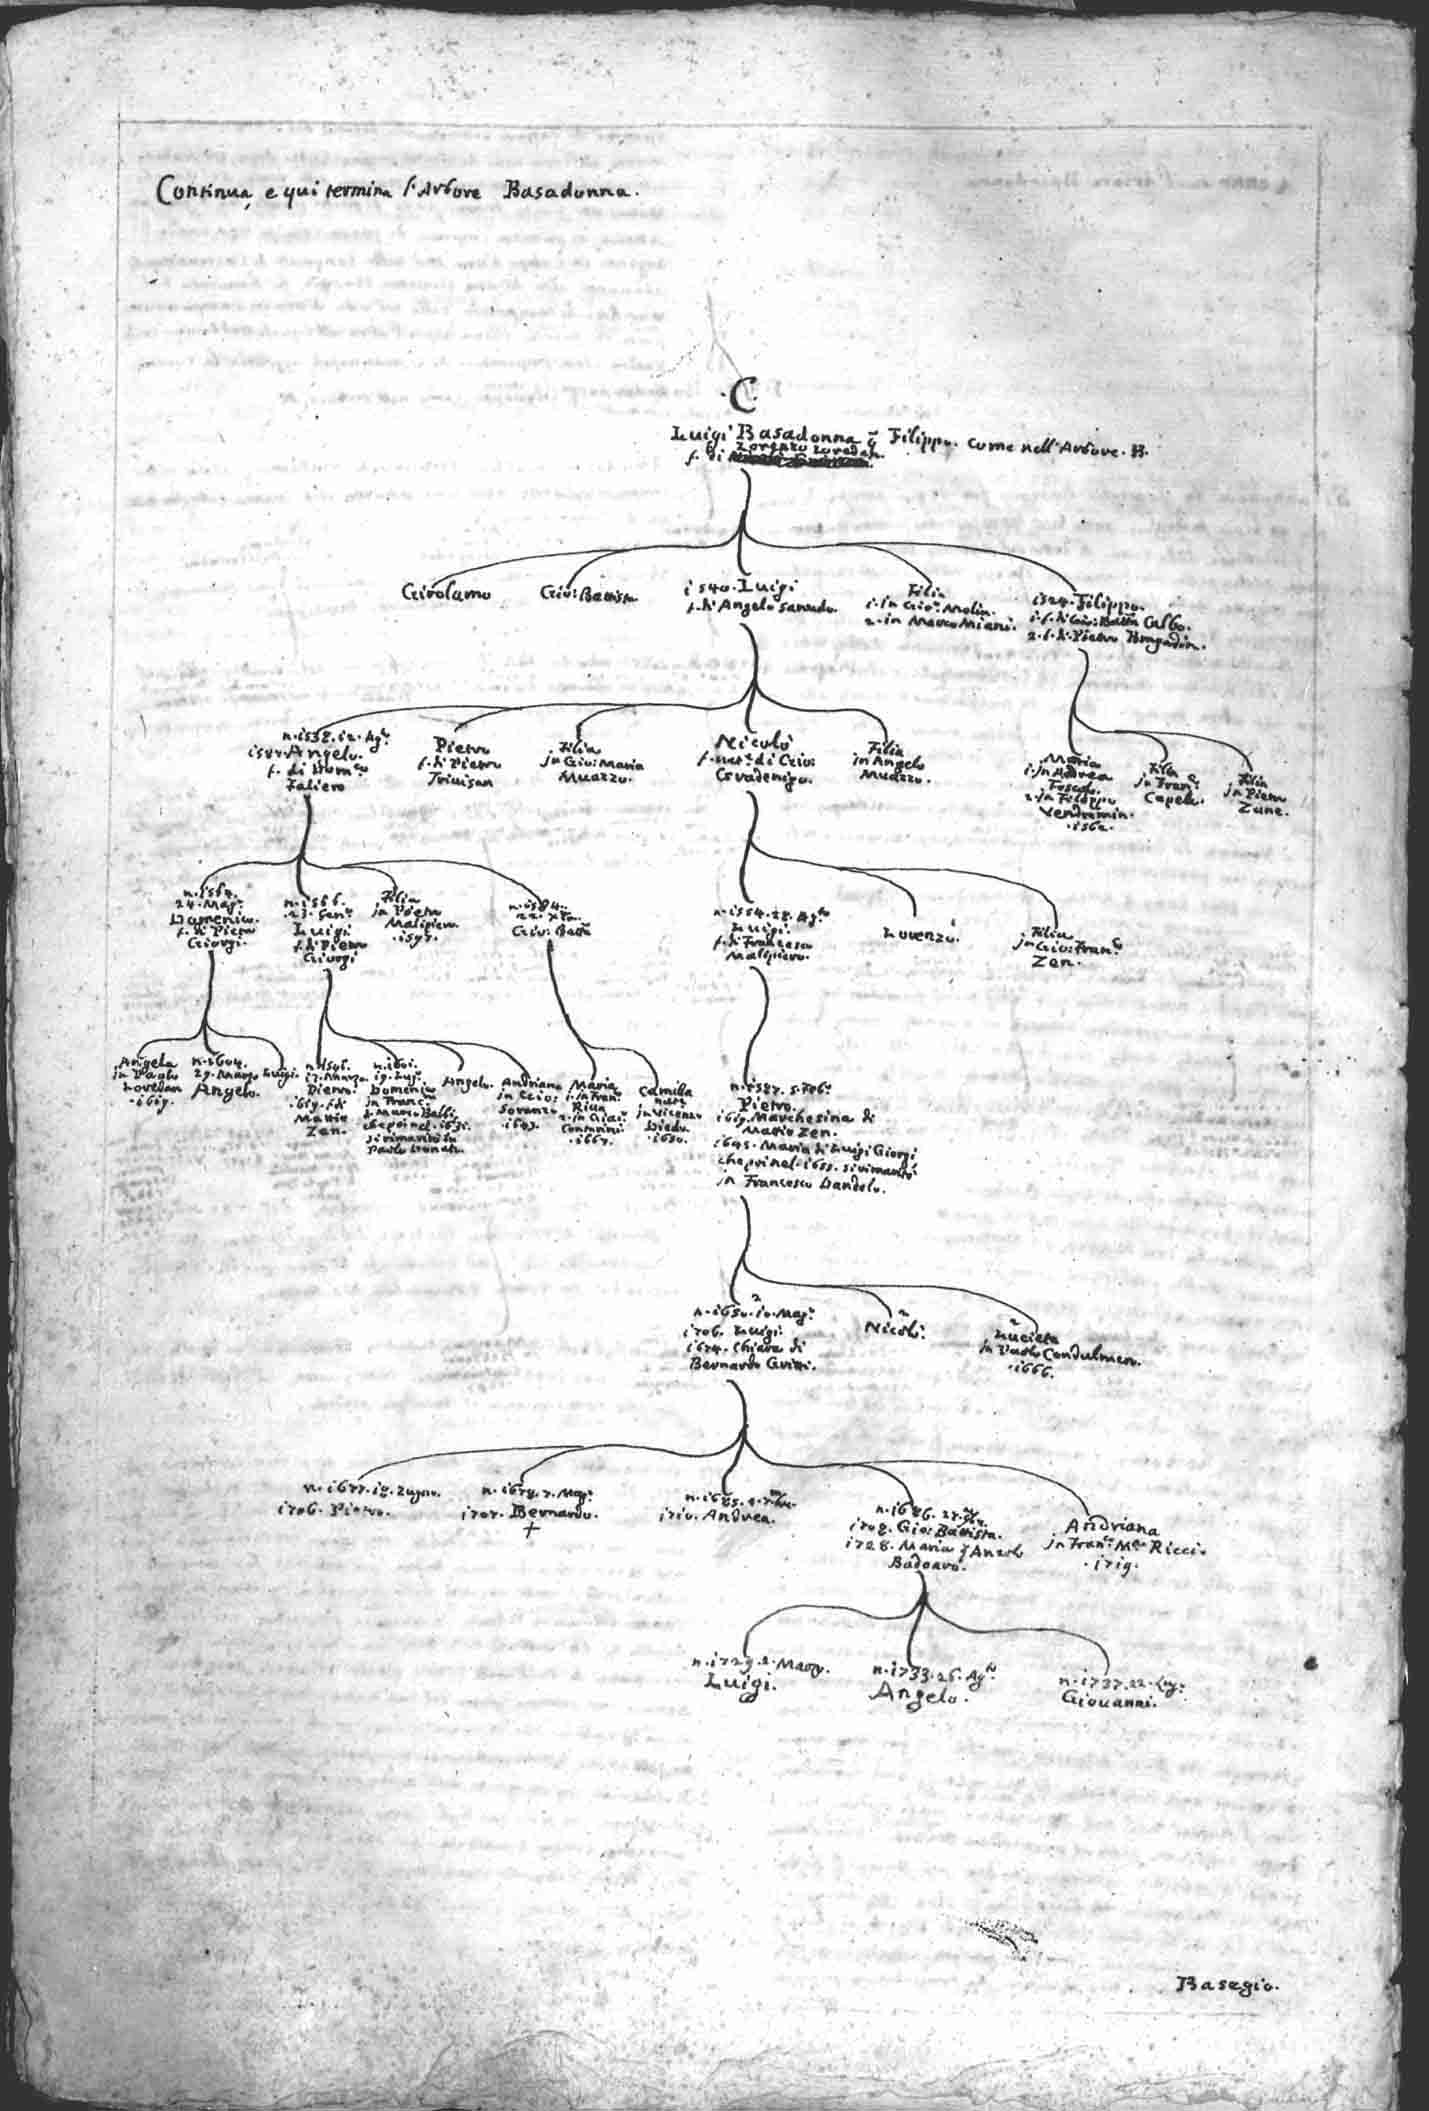 Continua, e qui termina l'Arbore Basadonna.
C
Luigi Basadonna q̃ Filippo. come nell'Arbore. B.
f. di Lorenzo Loredan.
Girolamo
Gio: Battista
i540. Luigi
f. di Angelo Sanudo.
Filia
i. in Gio: Molin.
2. in Marco Miani.
i524. Filippo.
i. f. di Gio: Batta Calbo.
2. f. di Pietro Bragadin.
n. i538. i2. Agº.
Angelo.
f. di Domco
Faliero
Pietro
f. di Pietro
Triuisan
Filia
jn Gio: Maria
Muazzo.
Nicolò
f. natª. di Gio:
Gradenigo.
Filia
jn Angelo
Muazzo.
Maria
i. jn Andrea
Foscolo.
2. jn Filippo
Vendramin.
. i562.
Filia
jn Franco
Capelo.
Filia
jn Pietro
Zane.
n. i564.
24. Magº.
Domenico.
f. di Pietro
Giorgi.
n. i566.
23. Genº.
Luigi
f. di Pietro
Giorgi
Filia
jn Pietro
Malipiero.
. i597.
22. Xbre.
Gio: Batta
n. i554. 28. Agto
Luigi.
f. di Francesco
Malipiero.
Lorenzo.
Filia
jn Gio: Franco
Zen.
Angela
jn Paolo
Loredan
. i619.
n. i604.
29. Marzo
Angelo.
Luigi.
n. i596.
17. Marzo
Pietro.
i619. f. di
Mattio
Zen.
n. i601.
19. Lugº.
Domenico
jn Francª.
f. Marco Balbi
che poi nel. i631.
si rimaritò in
Paolo Donato.
Angelo.
Andriana
jn Gio:
Soranzo
. i643.
Maria
i. jn Fran:
Riua
2. jn Giacº
Contarini
. i667.
Camilla
natª
jn Vicenzo
Diedo.
. i650.
n. i587. 5. Febº.
Pietro.
i619. Marchesina di
Mattio Zen.
i645. Maria di Luigi Giorgi
che poi nel. i655. si rimaritò
jn Francesco Dandolo.
2
n. i650. i0. Magº.
i706. Luigi.
i674. Chiara di
Bernardo Gritti.
2
Nicolò.
2
Lucieta
jn Paolo Condulmer.
. i666.
n. i677. i8. Zugno.
i706. Pietro.
n. i678. 7. Magº.
i707. Bernardo.
+
i710. Andrea.
n. i686. 27.
i708. Gio: Battista.
i728. Maria q̃ Anzolo
Badoaro.
Andriana
jn Franco Mª Ricci.
. i719.
n. i729. 2. Marzo.
Luigi.
n. i733. 26. Agto.
Angelo.
n. i737. 22. Lugº.
Giouanni.
Basegio.